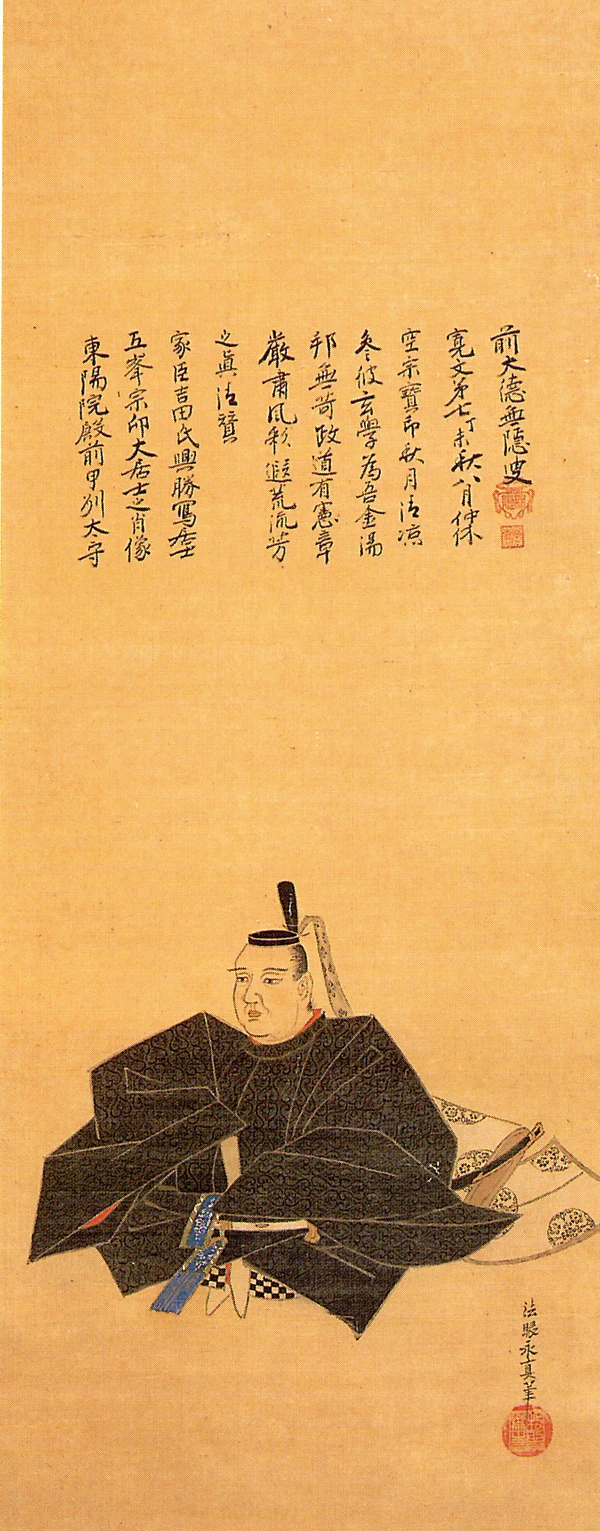 東陽院殿前甲州太守
五峯宗印大居士之肖像
家臣吉田氏興勝寫居士
之眞請贊
嚴肅風彩遐荒流芳
邦無苛政道有憲章
參彼玄學為吾金湯
空宗寶印秋月清凉
寛文第七丁未秋八月仲休
前大德無隱叟
法眼永真筆